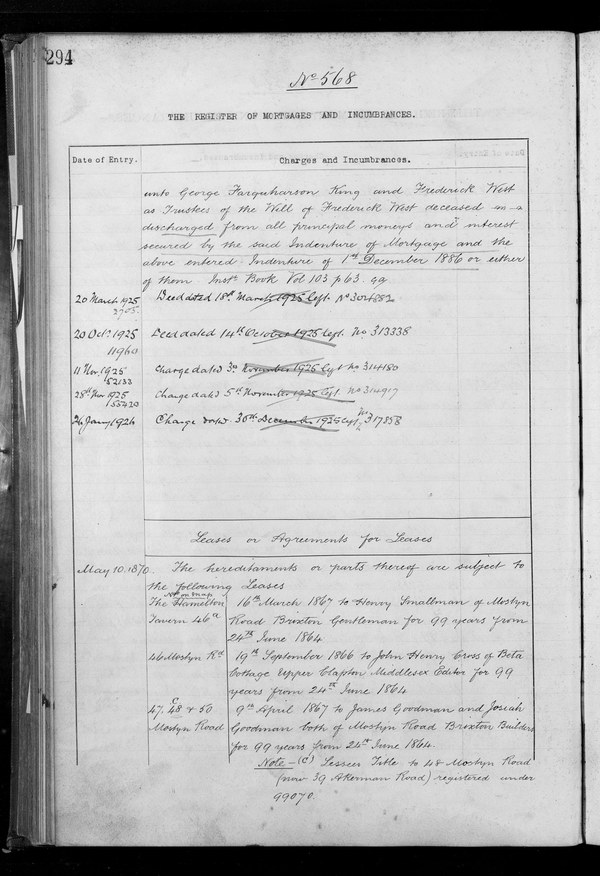 294
No 568
THE REGISTER OF MORTGAGES AND INCUMBRANCES.
Date of Entry. Charges and Incumbrances.
unto George Farquharson King and Frederick West
as Trustees of the Will of Frederick West deceased
discharged from all principal moneys and interest
secured by the said Indenture of Mortgage and the
above entered Indenture of 1st December 1886 or either
of them. Inst. Book Vol 103 p 63.
20 March 1925 Deed dated 18th March 1925 Cgft. No 304882
2705.
20 Oct. 1925 Deed dated 14th October 1925 Cgft. No 313338
11960
11 Nov. 1925 Charge dated 3rd November 1925 Cgft No 314180
52133
28th Nov 1925 Charge dated 5th November 1925 Cgft. No 314917
55420
26 Jany 1926 Charge dated 30th December 1925 Cgft No 317358
Leases or Agreements for Leases
May 10. 1870. The hereditaments or parts thereof are subject to
the following Leases
No on Map
The Hamilton 16th March 1867 to Henry Smallman of Mostyn
Tavern 46a Road Brixton Gentleman for 99 years from
24th June 1864
46 Mostyn Rd 19th September 1866 to John Henry Cross of Beta
Cottage Upper Clapton Middlesex Editor for 99
years from 24th June 1864
C
47. 48 & 50 9th April 1867 to James Goodman and Josiah
Mostyn Road Goodman both of Mostyn Road Brixton Builders
for 99 years from 24th June 1864.
Note - (C) Lessees Title to 48 Mostyn Road
(now 39 Akerman Road) registered under
99070.